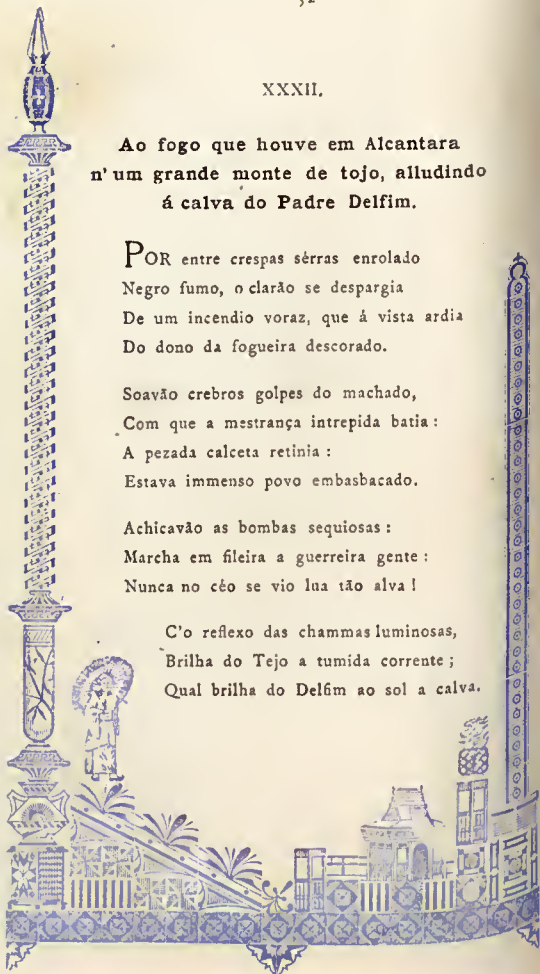 XXXII.
Ao fogo que houve em Alcantara
n'um grande monte de tojo, alludindo
á calva do Padre Delfim.
POR entre crespas sérras enrolado
Negro fumo, o clarão se despargia
De um incendio voraz, que á vista ardia
Do dono da fogueira descorado.
Soavão crebros golpes do machado,
Com que a mestrança intrepida batia :
A pezada calceta retinia :
Estava immenso povo embasbacado.
Achicavão as bombas sequiosas :
Marcha em fileira a guerreira gente :
Nunca no céo se vio lua tão alva !
C'o reflexo das chammas luminosas,
Brilha do Tejo a tumida corrente ;
Qual brilha do Delfim ao sol a calva.